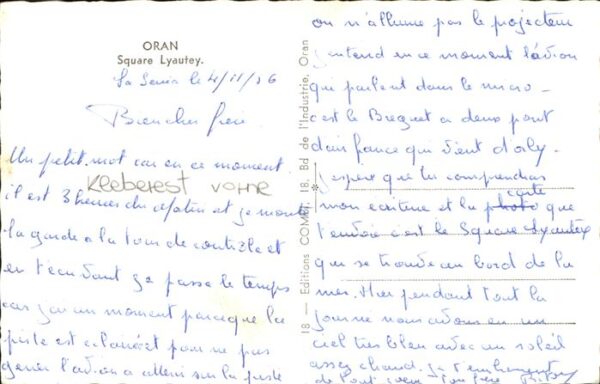 ORAN
Square Lyautey.
La Senia le 4/11/56
Bien cher frère.
Un petit mot car en ce moment
il est 3 heures du matin et je monte
la garde a la tour de contrôle et
en t'écrivant ça passe le temps
car j'ai un moment parce que la
piste est allumée pour ne pas
gener l'avion a atterri sur la piste
KLEBEREST VORNE
18 — Editions COMBI, 18, Bd de l'Industrie, Oran
on n'allume pas le projecteur
j'entend en ce moment l'avion
qui parlent dans le micro -
c'est le Breguet a deux pont
d'air france qui vient d'orly.
J'espère que tu comprendras
mon ecriture et la photo carte que
t'envoie c'est le Square Lyautey
qui se trouve au bord de la
mer. Hier pendant tout la
journée nous avons eu un
ciel tres bleu avec un soleil
assez chaud. Je t'embrasse
de tout coeur Ton frère